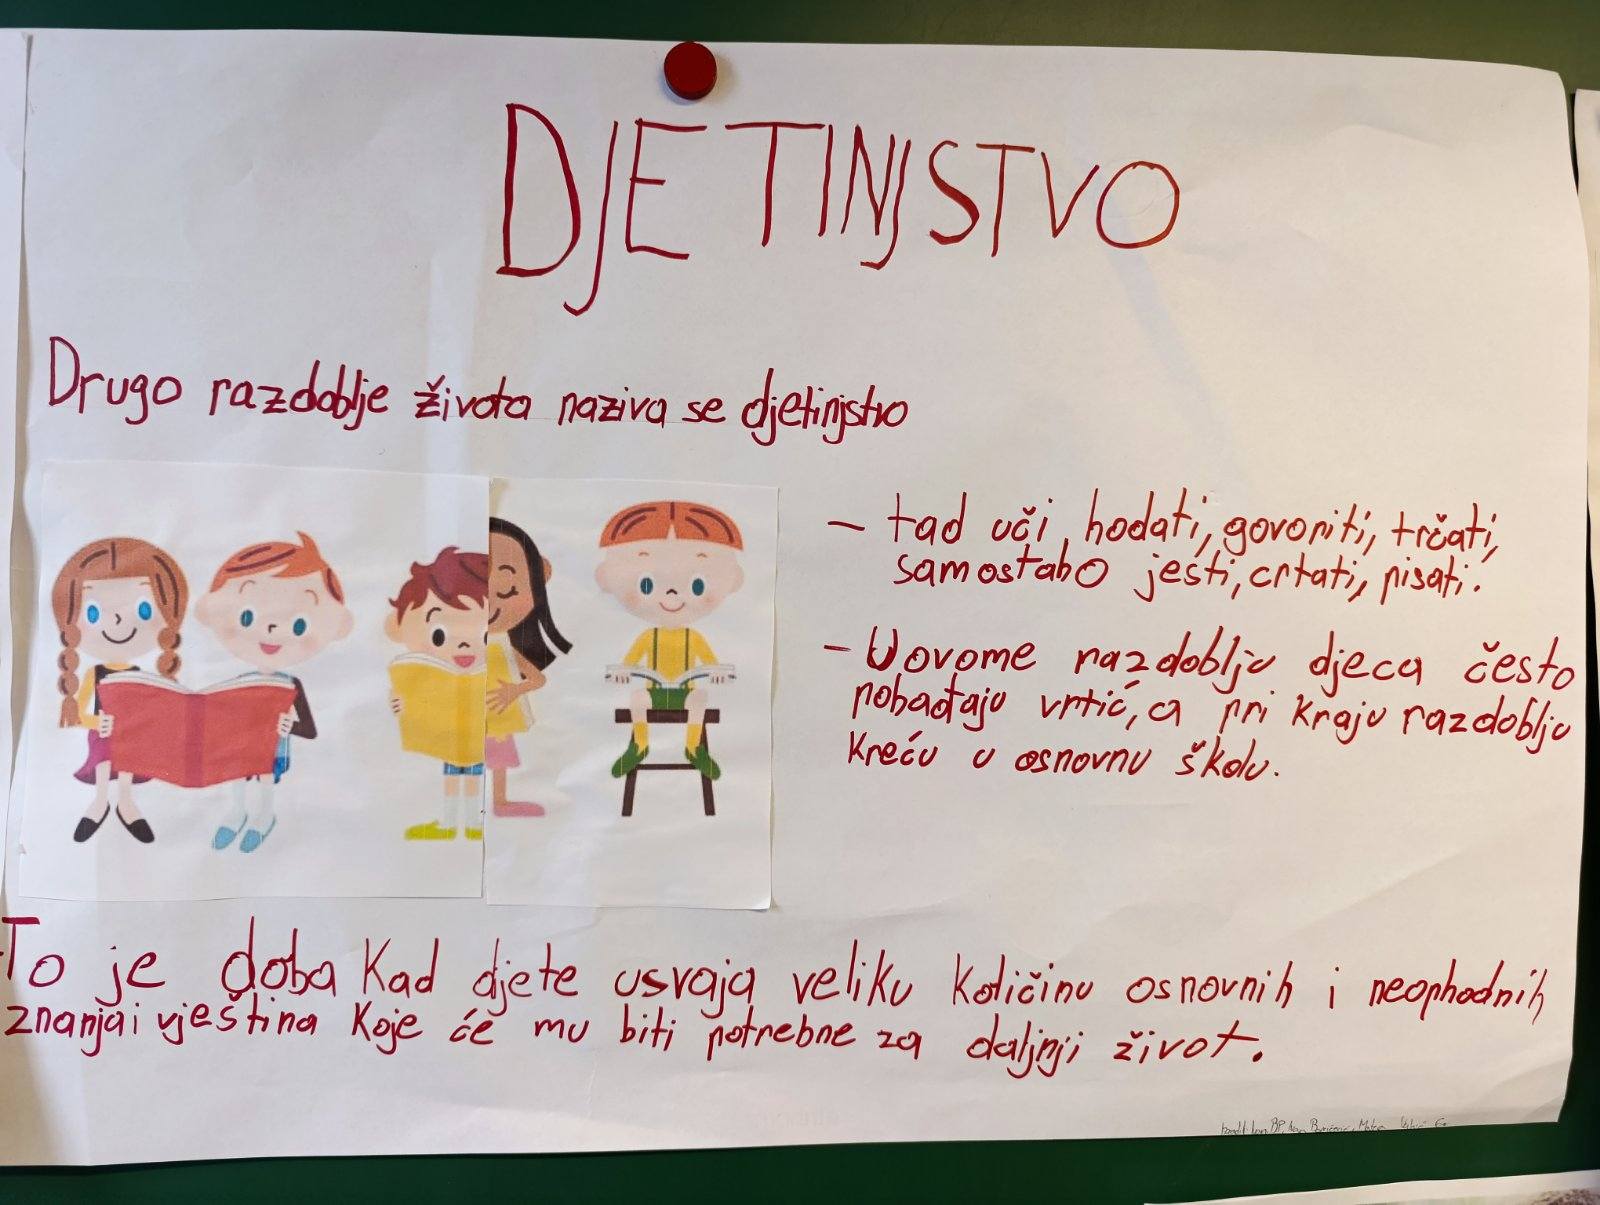 DJETINJSTVO
Drugo razdoblje života naziva se djetinjstvo
- tad uči hodati, govoriti, trčati,
samostabo jesti, crtati, pisati.
- U ovome razdoblju djeca često
pohađaju vrtić, a pri kraju razdoblju
kreću u osnovnu školu.
To je doba kad djete usvaja veliku količinu osnovnih i neophodnih
znanja i vještina koje će mu biti potrebne za daljnji život.